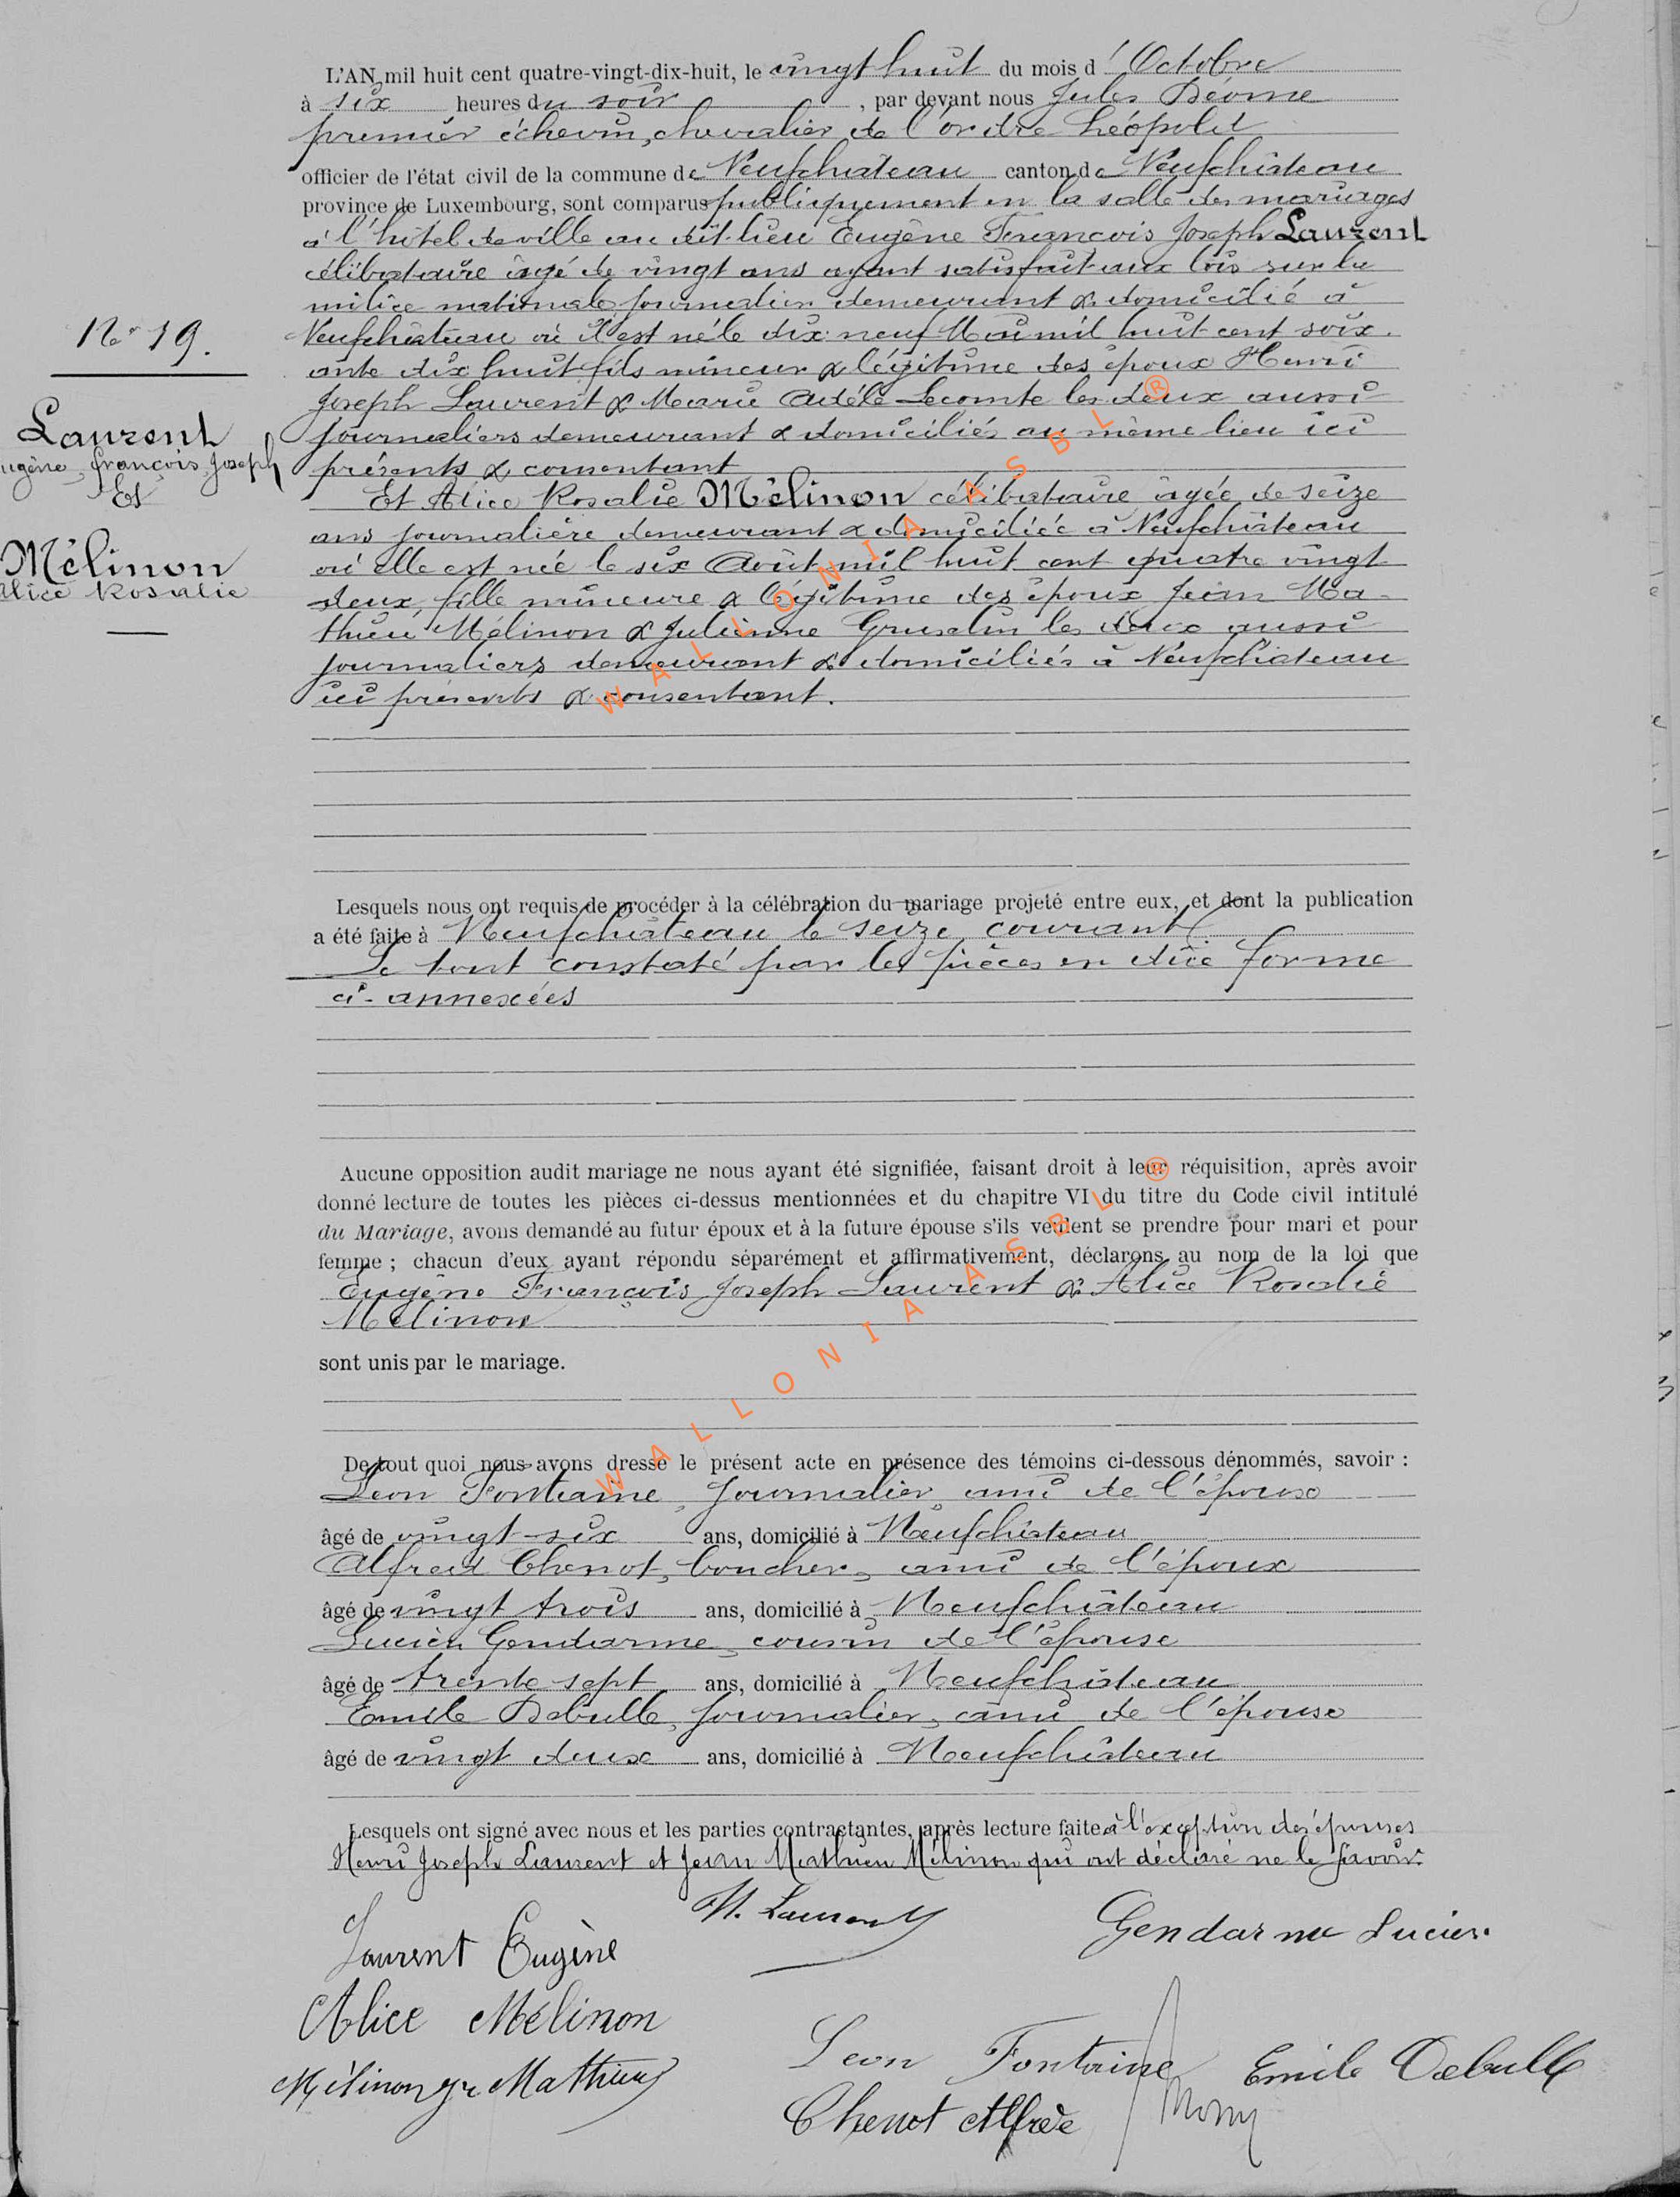 L'AN mil huit cent quatre-vingt-dix-huit, le vingt huit du mois d'Octobre
à six heures du soir, par devant nous Jules Déome
premier échevin, chevalier de l'ordre Léopold
officier de l'état civil de la commune de Neufchâteau canton de Neufchâteau
province de Luxembourg, sont comparus publiquement en la salle des mariages
à l'hôtel de ville au dit lieu Eugène François Joseph Laurent
célibataire âgé de vingt ans ayant satisfait aux lois sur la
milice nationale, journalier demeurant & domicilié à
Neufchâteau où il est né le dix-neuf Mai mil huit cent soix-
ante dix huit fils mineur & légitime des époux Henri
Joseph Laurent & Marie Adèle Lecomte les deux aussi
journaliers demeurant & domiciliés au même lieu ici
présents & consentant
Et Alice Rosalie Mélinon célibataire âgée de seize
ans journalière demeurant & domiciliée à Neufchâteau
où elle est née le six Août mil huit cent quatre vingt
deux, fille mineure & légitime des époux Jean Ma-
thieu Mélinon & Julienne Gruslin les deux aussi
journaliers demeurant & domiciliés à Neufchâteau
ici présents & consentant.
No 19.
Laurent
Eugène, françois, Joseph
Et
Mélinon
Alice Rosalie
WALLONIA ASBL ®
Lesquels nous ont requis de procéder à la célébration du mariage projeté entre eux, et dont la publication
a été faite à Neufchâteau le seize courant.
Le tout constaté par les pièces en due forme
ci-annexées
Aucune opposition audit mariage ne nous ayant été signifiée, faisant droit à leur réquisition, après avoir
donné lecture de toutes les pièces ci-dessus mentionnées et du chapitre VI du titre du Code civil intitulé
du Mariage, avons demandé au futur époux et à la future épouse s'ils veulent se prendre pour mari et pour
femme ; chacun d'eux ayant répondu séparément et affirmativement, déclarons au nom de la loi que
Eugène François Joseph Laurent & Alice Rosalie
Mélinon
sont unis par le mariage.
WALLONIA ASBL ®
De tout quoi nous avons dressé le présent acte en présence des témoins ci-dessous dénommés, savoir :
Léon Fontaine, journalier, ami de l'épouse
âgé de vingt-six ans, domicilié à Neufchâteau
Alfred Chenot, boucher, ami de l'époux
âgé de vingt trois ans, domicilié à Neufchâteau
Lucien Gendarme, cousin de l'épouse
âgé de trente sept ans, domicilié à Neufchâteau
Emile Debulle, journalier, ami de l'épouse
âgé de vingt deux ans, domicilié à Neufchâteau
Lesquels ont signé avec nous et les parties contractantes, après lecture faite à l'exception des épouses
Henri Joseph Laurent et Jean Mathieu Mélinon qui ont déclaré ne le savoir.
Laurent Eugène
H. Laurent
Gendarme Lucien.
Alice Mélinon
Mélinon Jn Mathieu
Leon Fontaine
Emile Debulle
Chenot Alfred